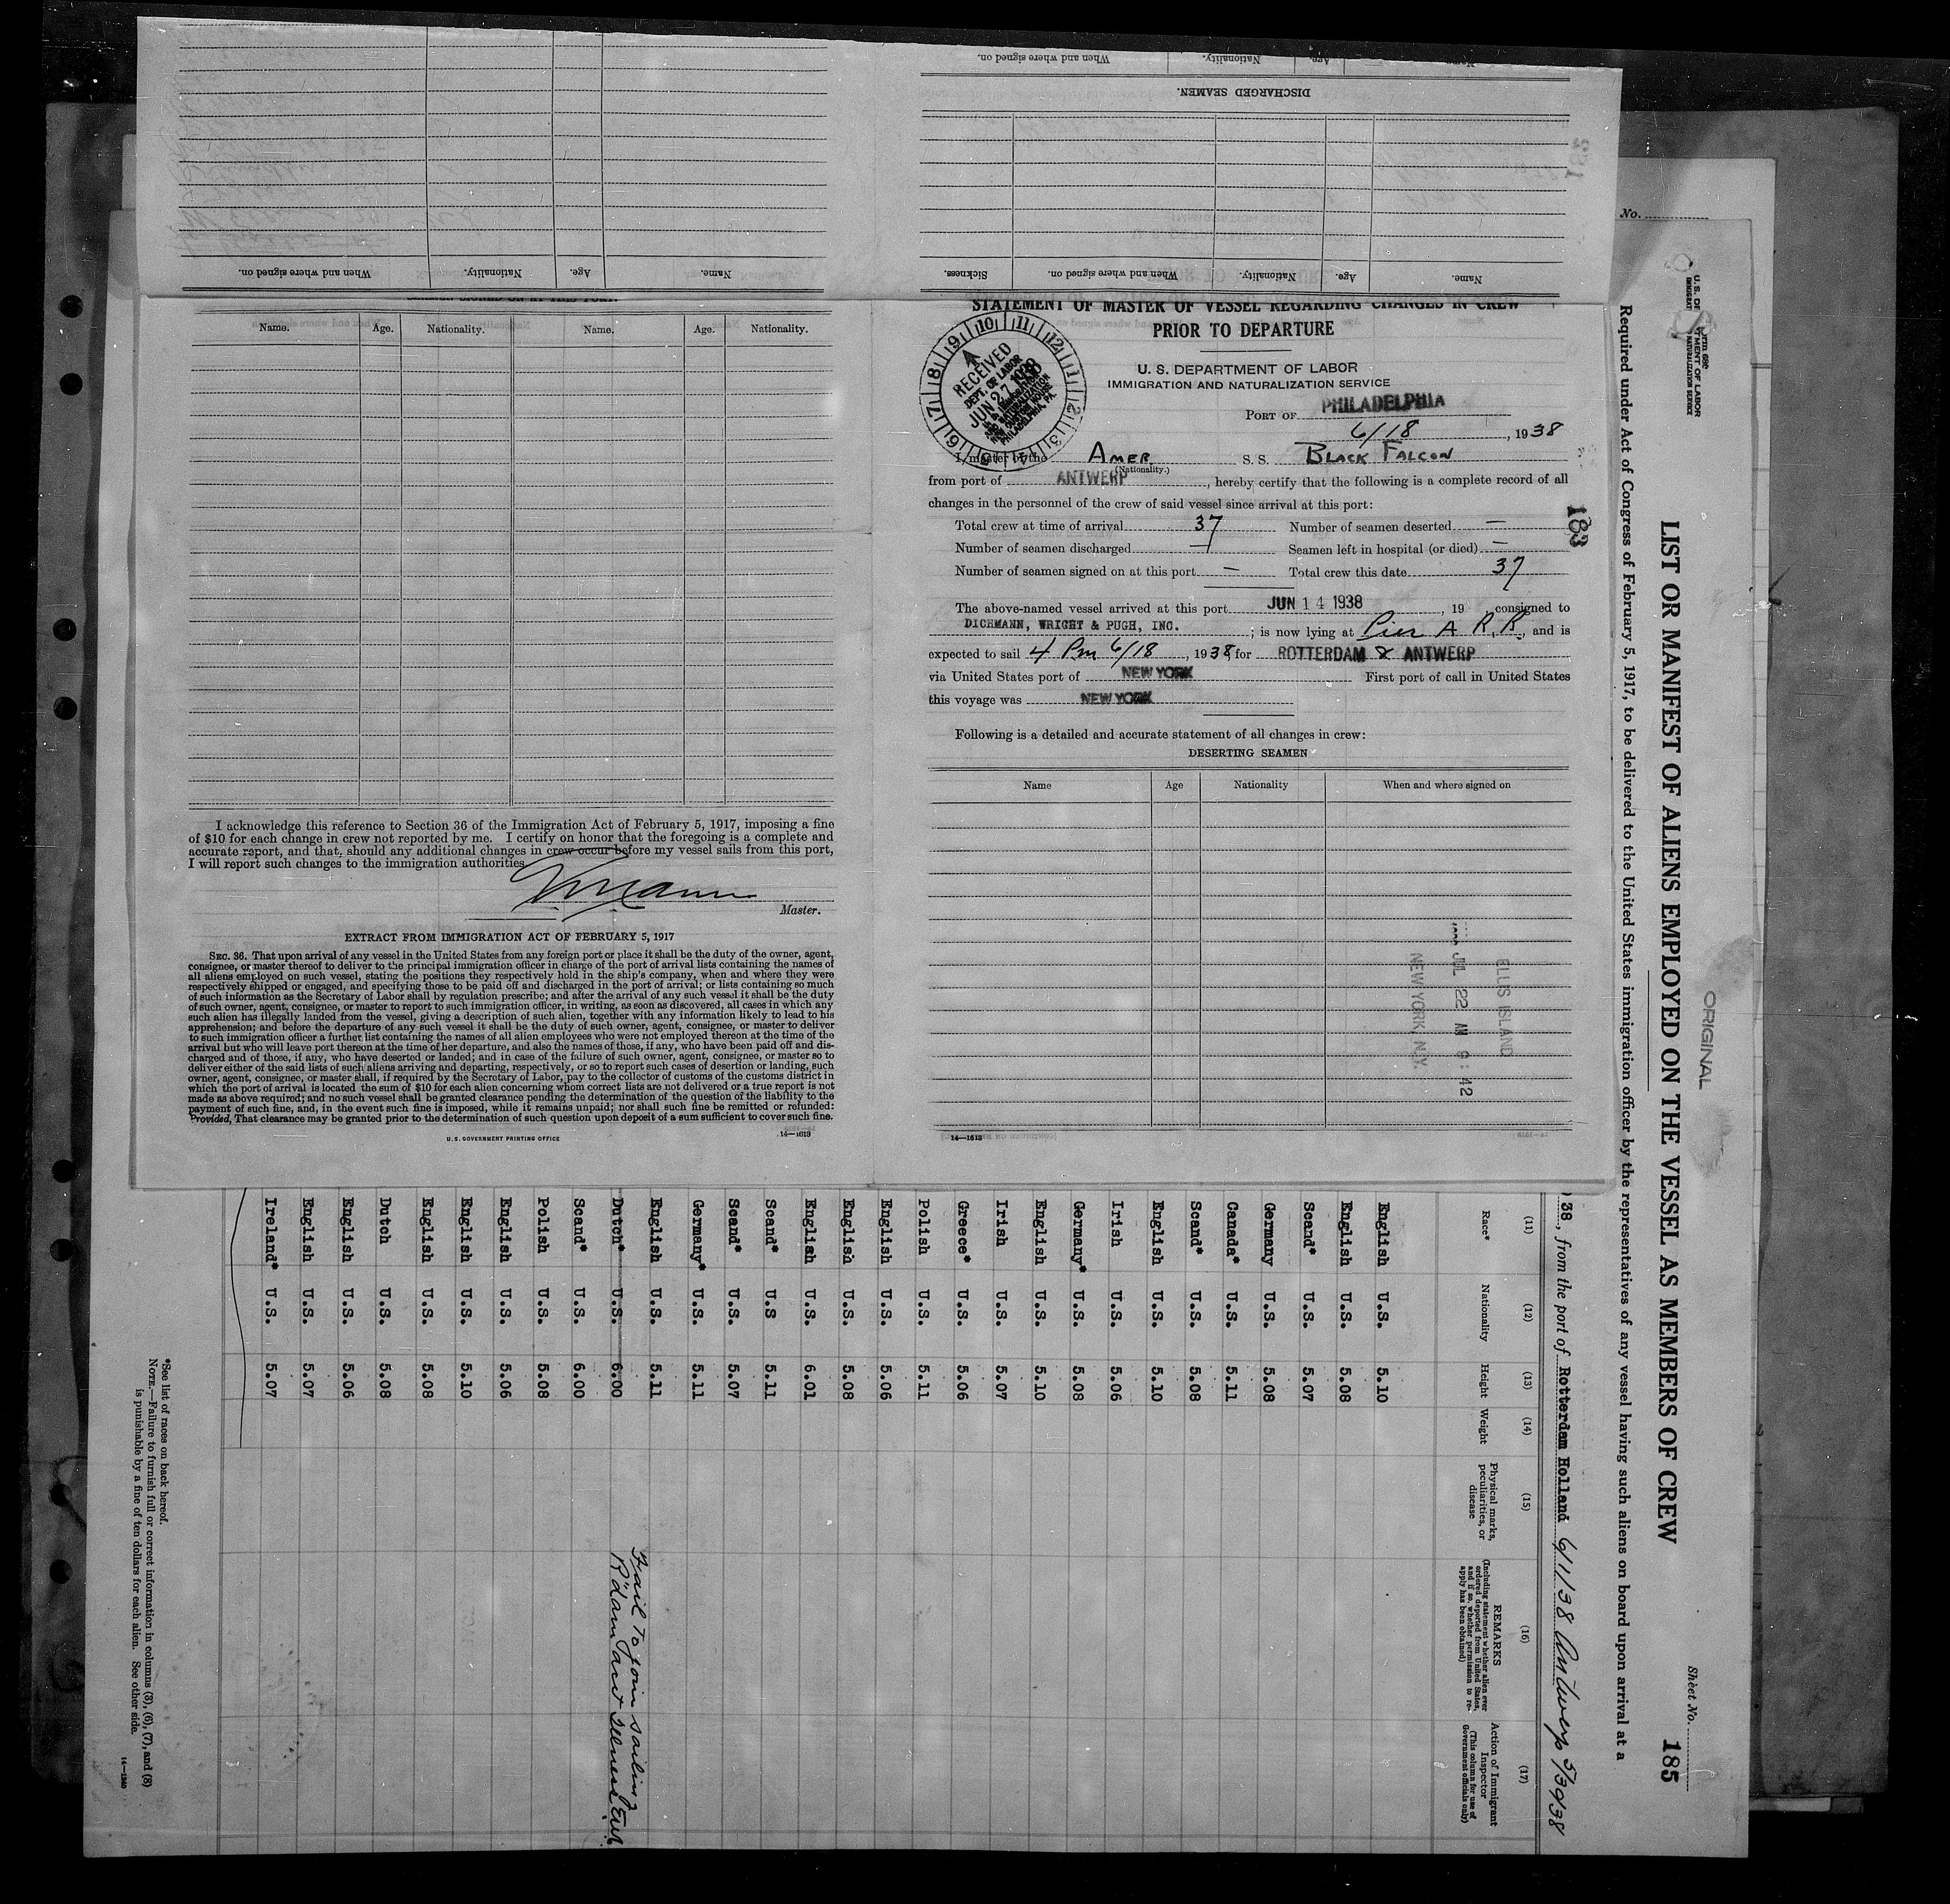 When and where signed on. Nationality. Age. Name.
DISCHARGED SEAMEN.
When and where signed on. Nationality. Age. Name.
Sickness. When and where signed on. Nationality. Age. Name.
Name. Age. Nationality. Name. Age. Nationality.
I acknowledge this reference to Section 36 of the Immigration Act of February 5, 1917, imposing a fine
of $10 for each change in crew not reported by me. I certify on honor that the foregoing is a complete and
accurate report, and that, should any additional changes in crew occur before my vessel sails from this port,
I will report such changes to the immigration authorities.
Master.
EXTRACT FROM IMMIGRATION ACT OF FEBRUARY 5, 1917
SEC. 36. That upon arrival of any vessel in the United States from any foreign port or place it shall be the duty of the owner, agent,
consignee, or master thereof to deliver to the principal immigration officer in charge of the port of arrival lists containing the names of
all aliens employed on such vessel, stating the positions they respectively hold in the ship's company, when and where they were
respectively shipped or engaged, and specifying those to be paid off and discharged in the port of arrival; or lists containing so much
of such information as the Secretary of Labor shall by regulation prescribe; and after the arrival of any such vessel it shall be the duty
of such owner, agent, consignee, or master to report to such immigration officer, in writing, as soon as discovered, all cases in which any
such alien has illegally landed from the vessel, giving a description of such alien, together with any information likely to lead to his
apprehension; and before the departure of any such vessel it shall be the duty of such owner, agent, consignee, or master to deliver
to such immigration officer a further list containing the names of all alien employees who were not employed thereon at the time of the
arrival but who will leave port thereon at the time of her departure, and also the names of those, if any, who have been paid off and dis-
charged and of those, if any, who have deserted or landed; and in case of the failure of such owner, agent, consignee, or master so to
deliver either of the said lists of such aliens arriving and departing, respectively, or so to report such cases of desertion or landing, such
owner, agent, consignee, or master shall, if required by the Secretary of Labor, pay to the collector of customs of the customs district in
which the port of arrival is located the sum of $10 for each alien concerning whom correct lists are not delivered or a true report is not
made as above required; and no such vessel shall be granted clearance pending the determination of the question of the liability to the
payment of such fine, and, in the event such fine is imposed, while it remains unpaid; nor shall such fine be remitted or refunded:
Provided, That clearance may be granted prior to the determination of such question upon deposit of a sum sufficient to cover such fine.
U.S. GOVERNMENT PRINTING OFFICE 14—1613
STATEMENT OF MASTER OF VESSEL REGARDING CHANGES IN CREW
PRIOR TO DEPARTURE
U. S. DEPARTMENT OF LABOR
IMMIGRATION AND NATURALIZATION SERVICE
RECEIVED
DEPT. OF LABOR
JUN 27 1938
PHILADELPHIA, PA.
PORT OF PHILADELPHIA
6/18, 1938
I, master of the AMER. S. S. BLACK FALCON
(Nationality.)
from port of ANTWERP, hereby certify that the following is a complete record of all
changes in the personnel of the crew of said vessel since arrival at this port:
Total crew at time of arrival 37 Number of seamen deserted —
Number of seamen discharged — Seamen left in hospital (or died) —
Number of seamen signed on at this port — Total crew this date 37
The above-named vessel arrived at this port JUN 14 1938, 19 , consigned to
DICHMANN, WRIGHT & PUGH, INC.; is now lying at Pier A R.R., and is
expected to sail 4 Pm 6/18, 1938, for ROTTERDAM & ANTWERP
via United States port of NEW YORK First port of call in United States
this voyage was NEW YORK
Following is a detailed and accurate statement of all changes in crew:
DESERTING SEAMEN
Name Age Nationality When and where signed on
ELLIS ISLAND
JUL 22 AM 9:42
NEW YORK N.Y.
14—1613
183
No.
U.S. DEPARTMENT OF LABOR
IMMIGRATION AND NATURALIZATION SERVICE
ORIGINAL
Sheet No. 185
LIST OR MANIFEST OF ALIENS EMPLOYED ON THE VESSEL AS MEMBERS OF CREW
Required under Act of Congress of February 5, 1917, to be delivered to the United States immigration officer by the representatives of any vessel having such aliens on board upon arrival at a
38, from the port of Rotterdam Holland 6/1/38 Antwerp 5/30/38
(11) (12) (13) (14) (15) (16) (17)
Race* Nationality Height Weight Physical marks, peculiarities, or disease REMARKS (Including statement whether alien ever ordered deported from United States, and if so, whether permission to reapply has been obtained) Action of Immigrant Inspector (This column for use of Government officials only)
English U.S. 5.10
English U.S. 5.08
Scand* U.S. 5.07
Germany U.S. 5.08
Canada* U.S. 5.11
Scand* U.S. 5.08
English U.S. 5.10
Irish U.S. 5.06
Germany* U.S. 5.08
English U.S. 5.10
Irish U.S. 5.07
Greece* U.S. 5.06
Polish U.S. 5.11
English U.S. 5.06
English U.S. 5.08
English U.S. 6.01
Scand* U.S 5.11
Scand* U.S. 5.07
Germany* U.S. 5.11
English U.S. 5.11
Dutch* U.S. 6.00 Fail to join sailing R'dam
Scand* U.S. 6.00
Polish U.S. 5.08
English U.S. 5.06
English U.S. 5.10
English U.S. 5.08
Dutch U.S. 5.08
English U.S. 5.06
English U.S. 5.07
Ireland* U.S. 5.07
*See list of races on back hereof.
NOTE.—Failure to furnish full or correct information in columns (3), (6), (7), and (8)
is punishable by a fine of ten dollars for each alien. See other side.
14—1240